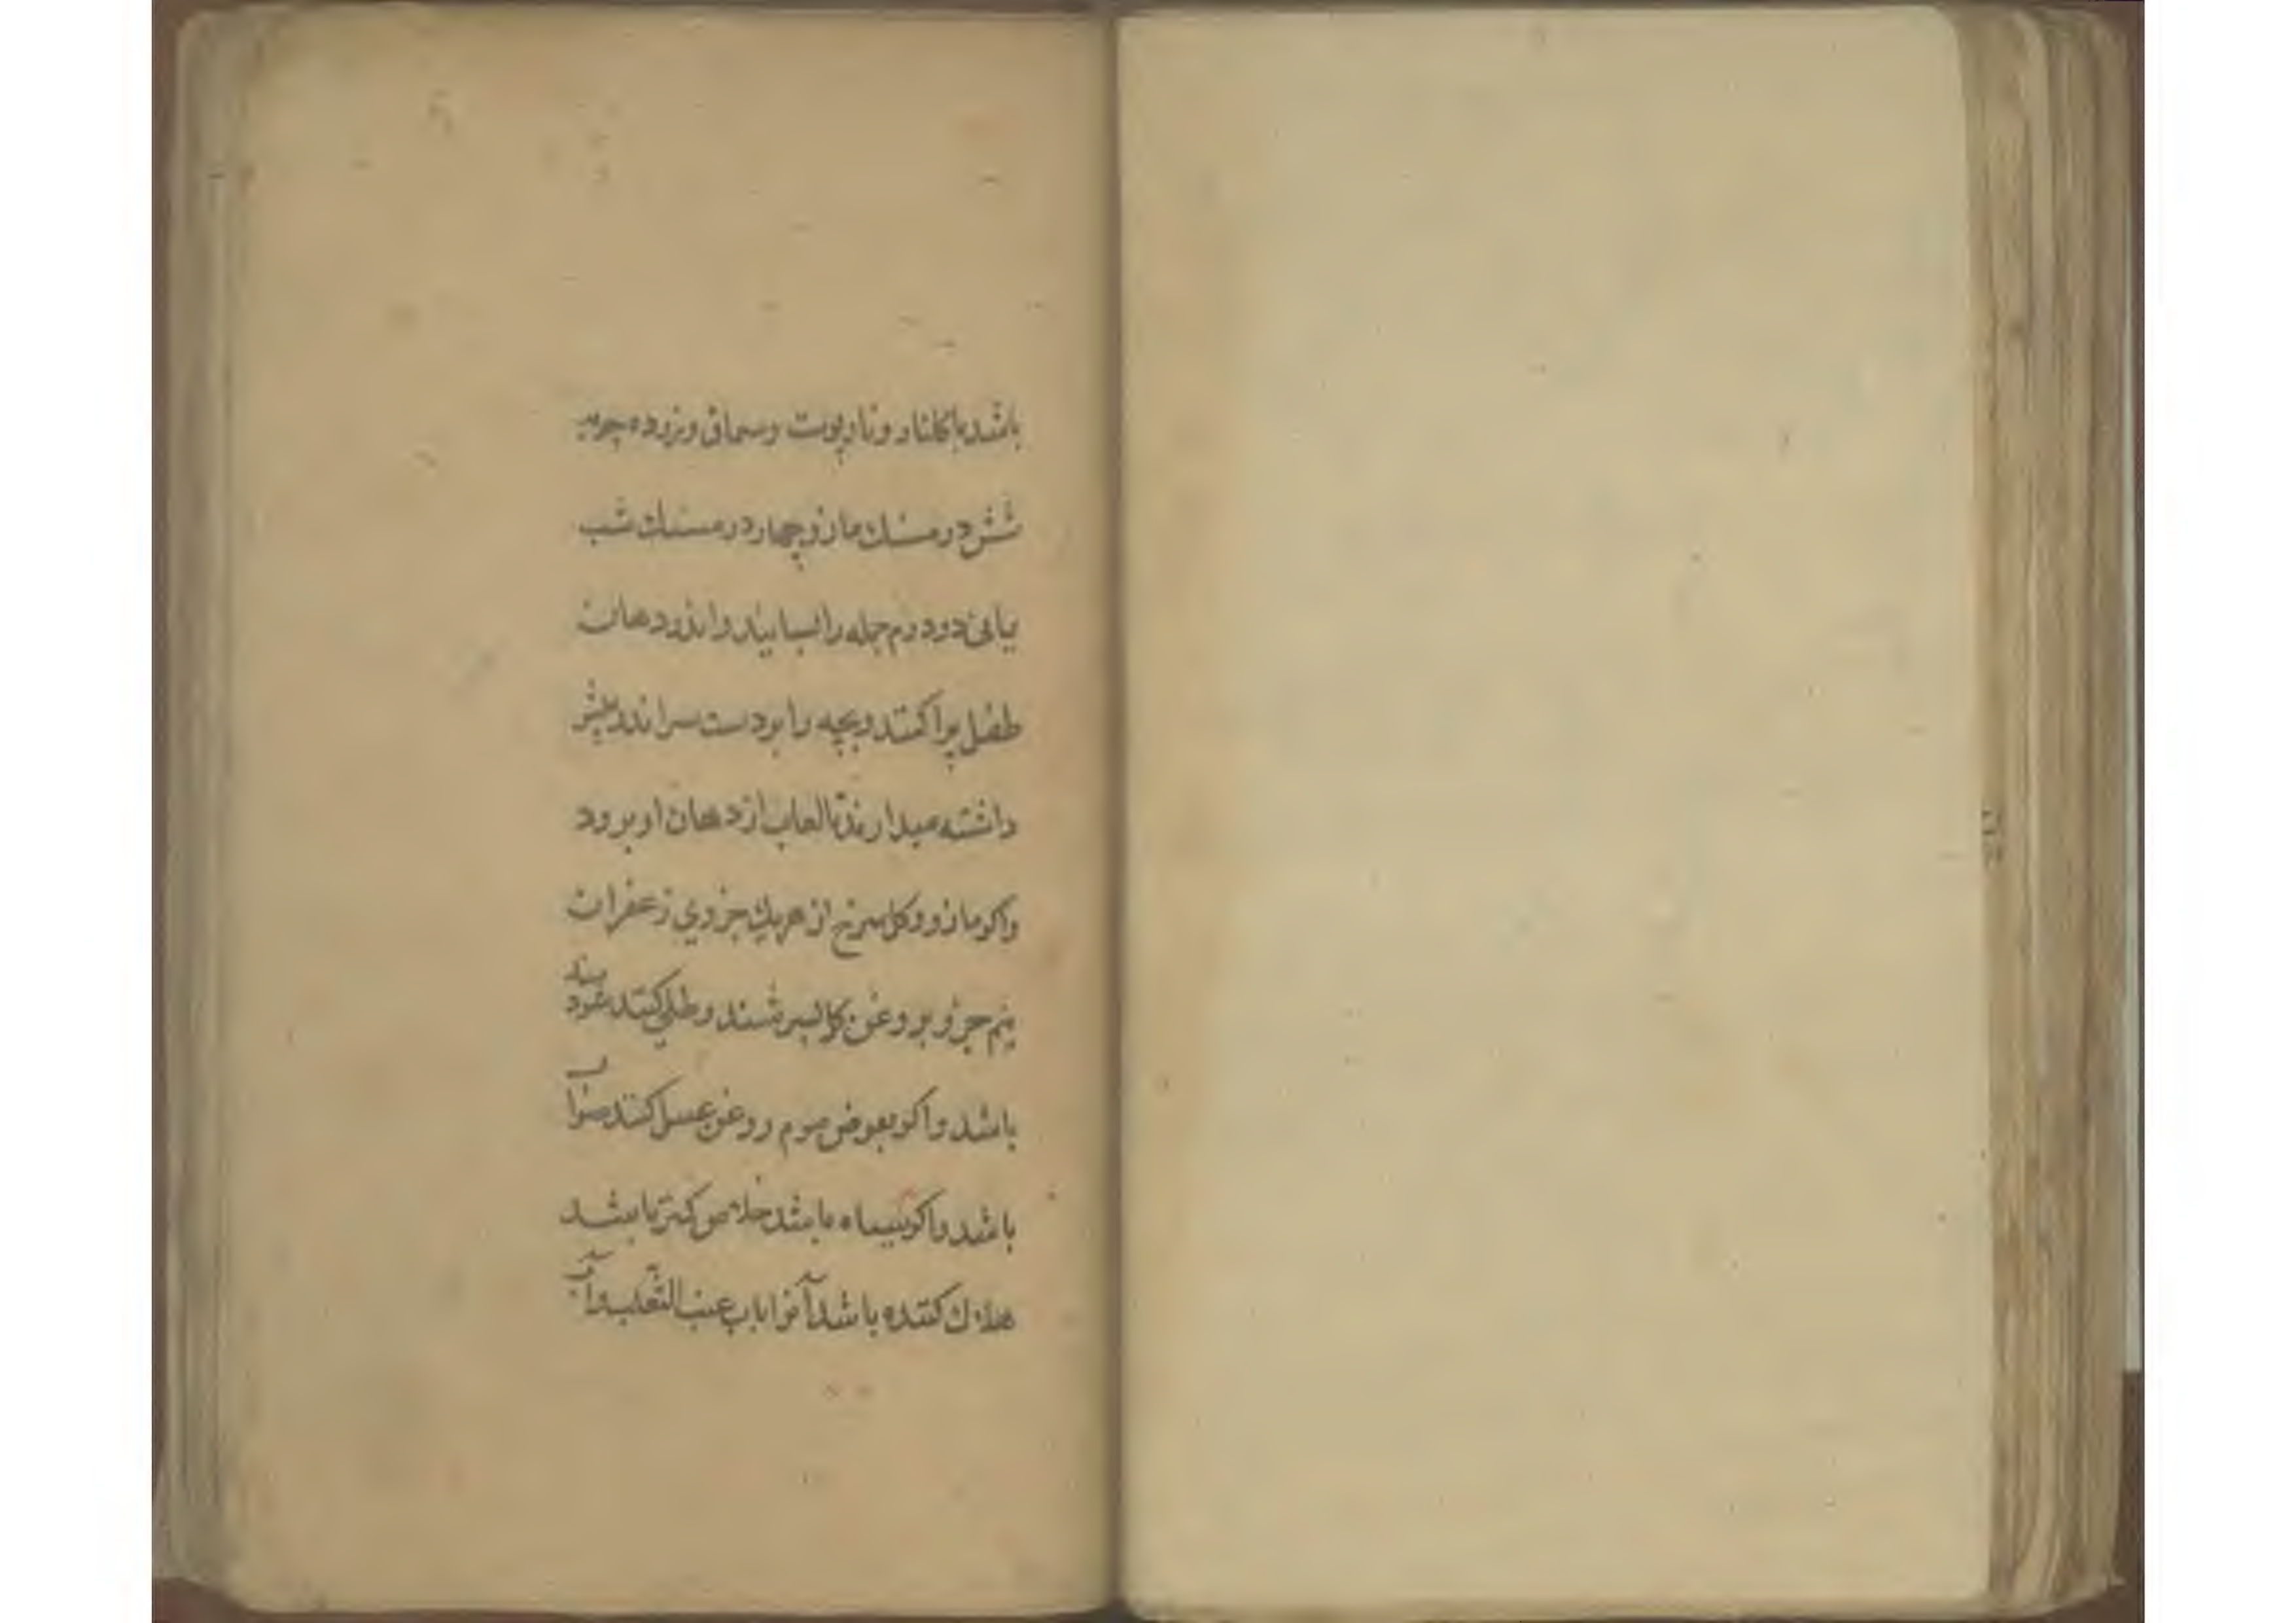 باشد با کلنار و نارپوست و سماق و زرده چوبه
شش درمسنك مازو چهار درمسنك شب
یمانی دو درم جمله را بسایند و اندر دهان
طفل پراکنند و بچه را بر دست سر اندر پیش
داشته میدارند تا لعاب از دهان او برود
واکر مازو و کل سرخ از هریك جزوی زعفران
نیم جزو بروغن کل بسرشند و طلی کنند سودمند
باشد واکر بعوض موم روغن عسل کنند صواب
باشد واکر سیاه باشد خلاص کمتر باشد
هلاك کننده باشد آنرا باب عنب الثعلب وآب